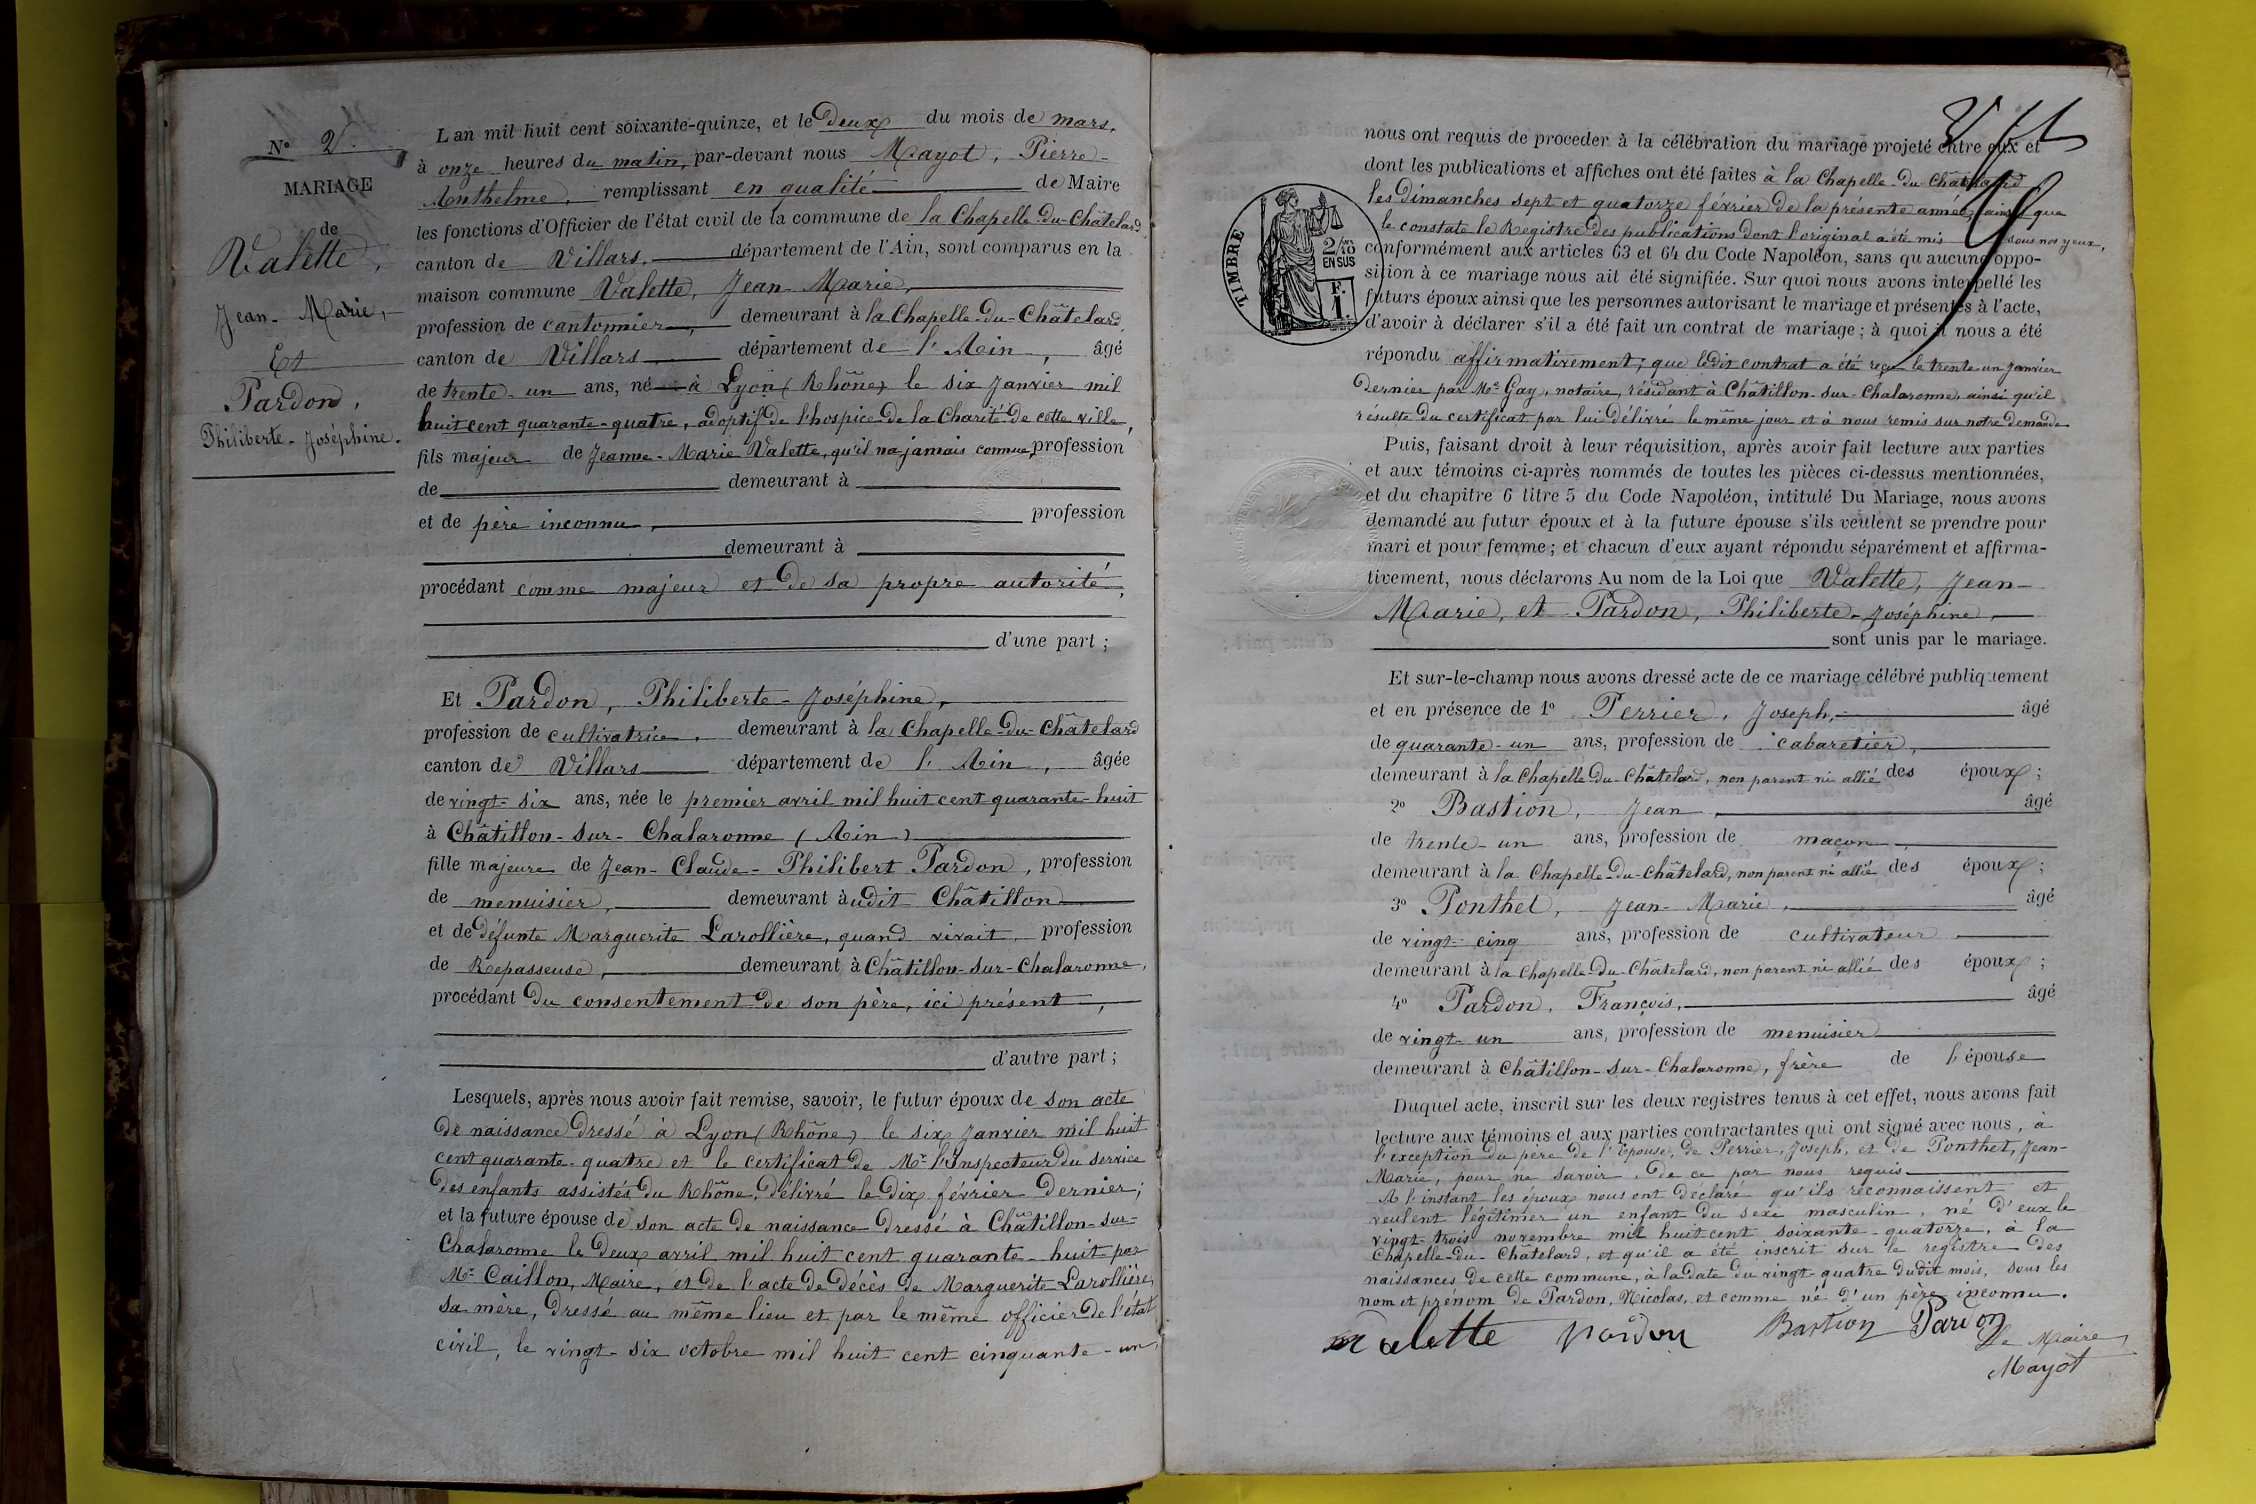 N° 2.
MARIAGE
de
Valette,
Jean-Marie,
Et
Pardon,
Philiberte-Joséphine.
L'an mil huit cent soixante-quinze, et le deux du mois de mars,
à onze heures du matin, par-devant nous Mayot, Pierre-
Anthelme, remplissant en qualité de Maire
les fonctions d'Officier de l'état civil de la commune de la Chapelle-du-Châtelard
canton de Villars, département de l'Ain, sont comparus en la
maison commune Valette, Jean-Marie,
profession de cantonnier, demeurant à la Chapelle-du-Châtelard,
canton de Villars département de l'Ain, âgé
de trente-un ans, né à Lyon (Rhône) le six janvier mil
huit cent quarante-quatre, adoptif de l'hospice de la Charité de cette ville,
fils majeur de Jeanne-Marie Valette, qu'il n'a jamais connue, profession
de demeurant à
et de père inconnu, profession
demeurant à
procédant comme majeur et de sa propre autorité,
d'une part ;
Et Pardon, Philiberte-Joséphine,
profession de cultivatrice, demeurant à la Chapelle-du-Châtelard
canton de Villars département de l'Ain, âgée
de vingt-six ans, née le premier avril mil huit cent quarante-huit
à Châtillon-sur-Chalaronne (Ain)
fille majeure de Jean-Claude-Philibert Pardon, profession
de menuisier, demeurant àudit Châtillon
et de défunte Marguerite Larollière, quand vivait, profession
de Repasseuse, demeurant à Châtillon-sur-Chalaronne,
procédant du consentement de son père, ici présent,
d'autre part ;
Lesquels, après nous avoir fait remise, savoir, le futur époux de son acte
de naissance dressé à Lyon (Rhône) le six janvier mil huit
cent quarante-quatre et le certificat de Mr l'Inspecteur du service
des enfants assistés du Rhône, délivré le dix février dernier;
et la future épouse de son acte de naissance dressé à Châtillon-sur-
Chalaronne le deux avril mil huit cent quarante-huit par
Mr Caillon, Maire, et de l'acte de décès de Marguerite Larollière,
sa mère, dressé au même lieu et par le même officier de l'état
civil, le vingt-six octobre mil huit cent cinquante-un,
nous ont requis de proceder à la célébration du mariage projeté entre eux et
dont les publications et affiches ont été faites à la Chapelle-du-Châtelard
les dimanches sept et quatorze février de la présente année, ainsi que
le constate le Registre des publications dont l'original a été mis sous nos yeux,
TIMBRE
2/10
EN SUS
F.
1.
conformément aux articles 63 et 64 du Code Napoléon, sans qu'aucune oppo-
sition à ce mariage nous ait été signifiée. Sur quoi nous avons interpellé les
futurs époux ainsi que les personnes autorisant le mariage et présentes à l'acte,
d'avoir à déclarer s'il a été fait un contrat de mariage ; à quoi il nous a été
répondu affirmativement; que ledit contrat a été reçu le trente un janvier
dernier par Me Gay, notaire, résidant à Châtillon-sur-Chalaronne, ainsi qu'il
résulte du certificat par lui délivré le même jour et à nous remis sur notre demande
Puis, faisant droit à leur réquisition, après avoir fait lecture aux parties
et aux témoins ci-après nommés de toutes les pièces ci-dessus mentionnées,
et du chapitre 6 titre 5 du Code Napoléon, intitulé Du Mariage, nous avons
demandé au futur époux et à la future épouse s'ils veulent se prendre pour
mari et pour femme ; et chacun d'eux ayant répondu séparément et affirma-
tivement, nous déclarons Au nom de la Loi que Valette, Jean-
Marie, et Pardon, Philiberte-Joséphine,
sont unis par le mariage.
Et sur-le-champ nous avons dressé acte de ce mariage célébré publiquement
et en présence de 1° Perrier, Joseph, âgé
de quarante-un ans, profession de cabaretier,
demeurant à la Chapelle-du-Châtelard, non parent ni allié des époux ;
2° Bastion, Jean, âgé
de trente-un ans, profession de maçon,
demeurant à la Chapelle-du-Châtelard, non parent ni allié des époux ;
3° Ponthet, Jean-Marie, âgé
de vingt-cinq ans, profession de cultivateur
demeurant à la Chapelle-du-Châtelard, non parent ni allié des époux ;
4° Pardon, François, âgé
de vingt-un ans, profession de menuisier
demeurant à Châtillon-sur-Chalaronne, frère de l'épouse
Duquel acte, inscrit sur les deux registres tenus à cet effet, nous avons fait
lecture aux témoins et aux parties contractantes qui ont signé avec nous, à
l'exception du père de l'Epouse, de Perrier, Joseph, et de Ponthet, Jean-
Marie, pour ne savoir, de ce par nous requis
A l'instant les époux nous ont déclaré qu'ils reconnaissent et
veulent légitimer un enfant du sexe masculin, né d'eux le
vingt-trois novembre mil huit cent soixante-quatorze, à la
Chapelle-du-Châtelard, et qu'il a été inscrit sur le registre des
naissances de cette commune, à la date du vingt-quatre dudit mois, sous les
nom et prénom de Pardon, Nicolas, et comme né d'un père inconnu.
Valette Pardon Bastion Pardon
Le Maire
Mayot